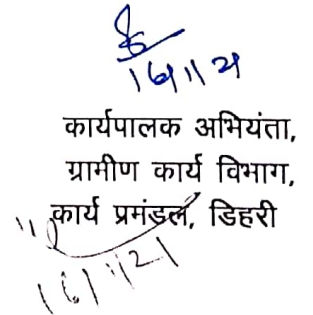 16/11/21
कार्यपालक अभियंता,
ग्रामीण कार्य विभाग,
कार्य प्रमंडल, डिहरी
16/11/21